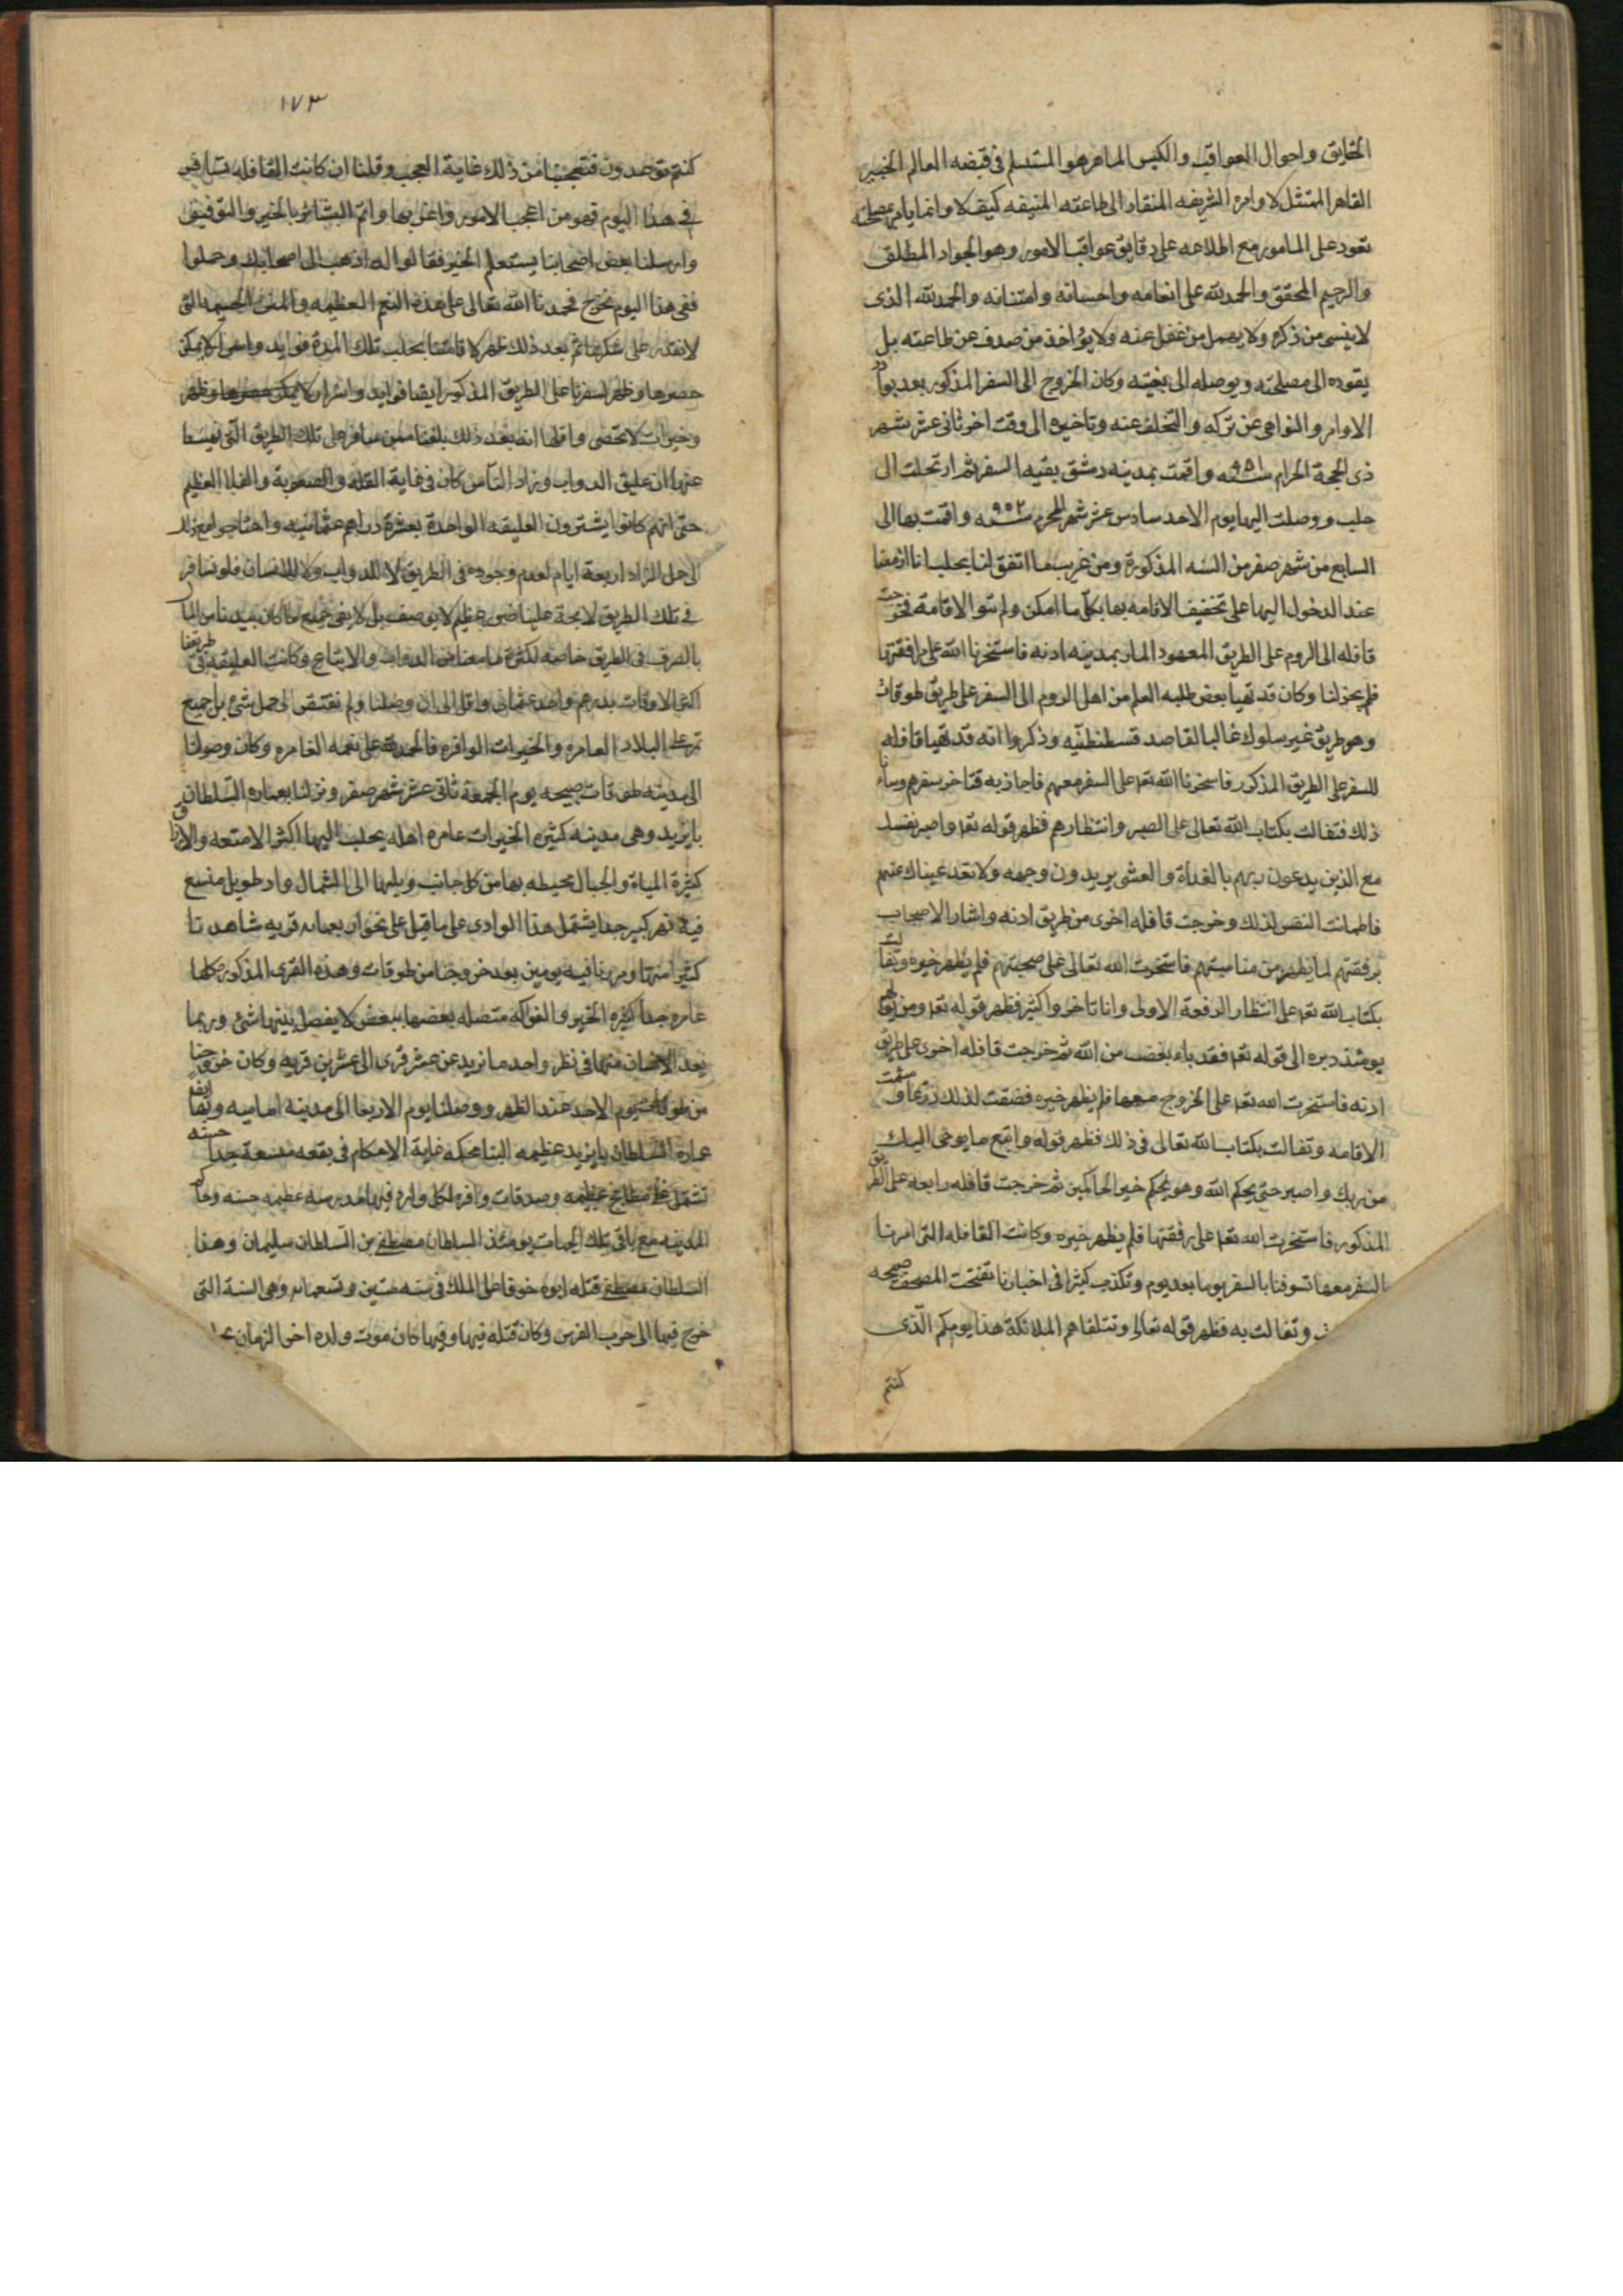 الخلايق واحوال العواقب والكيس الماهر هو المستسلم فى قبضه العالم الخبير
القاهر الممتثل لاوامره الشريفه المنقاد الى طاعته المنيفه كيف لا وانما يامر بمصلحته
تعود على المامور مع اطلاعه على دقايق عواقب الامور وهو الجواد المطلق
والرحيم المحقق والحمد لله على انعامه واحسانه وامتنانه والحمد لله الذى
لا ينسى من ذكره ولا يهمل من غفل عنه ولا يؤاخذ من صدف عن طاعته بل
يقوده الى مصلحته ويوصله الى بغيته وكان الخروج الى السفر المذكور بعد بوادر
الاوامر والنواهى عن تركه والتخلف عنه وتاخيره الى وقت اخر ثانى عشر شهر
ذى الحجة الحرام سنه ٩٥١ واقمت بمدينه دمشق بقيه السفر ثم ارتحلت الى
حلب ووصلت اليها يوم الاحد سادس عشر شهر المحرم سنه ٩٥٢ واقمت بها الى
السابع من شهر صفر من السنه المذكورة ومن غريب ما اتفق لنا بحلب انا ازمعنا
عند الدخول اليها على تخفيف الاقامه بها بكل ما امكن ولم ننو الاقامة فخرجت
قافله الى الروم على الطريق المعهود المار بمدينه ادنه فاستخرنا الله على مرافقتها
فلم يخر لنا وكان قد تهيا بعض طلبه العلم من اهل الروم الى السفر على طريق طوقات
وهو طريق غير سلوك غالبا لقاصد قسطنطنيه وذكروا انه قد تهيا قافله
للسفر على الطريق المذكور فاسخرنا الله تعا على السفر معهم فاجاذ به فتاخر سفرهم وساءنا
ذلك فتفالت بكتاب الله تعالى على الصبر وانتظارهم فظهر قوله تعا واصبر نفسك
مع الذين يدعون ربهم بالغداة والعشى يريدون وجهه ولا تعد عيناك عنهم
فاطمانت النفس لذلك وخرجت قافله اخرى من طريق ادنه واشار الاصحاب
برفقتهم لما يظهر من مناسبتهم فاستخرت الله تعالى على صحبتهم فلم يظهر خيره وتفالت
بكتاب الله تعا على انتظار الرفعة الاولى وانا تاخروا كثير فظهر قوله تعا ومن يولهم
يومئذ دبره الى قوله تعا فقد باء بغضب من الله ثم خرجت قافله اخرى على طريق
ادنه فاستخرت الله تعا على الخروج معها فلم يظهر خيره فضقت لذلك ذرعا وسئمت
الاقامه وتفالت بكتاب الله تعالى فى ذلك فظهر قوله واتبع ما يوحى اليك
من ربك واصبر حتى يحكم الله وهو يحكم خير الحاكمين ثم خرجت قافله رابعه على الطريق
المذكور فاستخرت الله تعا على رفقتها فلم يظهر خيره وكانت القافله التى امرنا
بالسفر معها تسوفنا بالسفر يوما بعد يوم وتكذب كثيرا فى اخبارنا ففتحت المصحف صبيحه
وتفالت به فظهر قوله تعالى وتتلقاهم الملائكة هذا يومكم الذى
كنتم
١٧٣
كنتم توعدون فتعجبنا من ذلك غاية العجب وقلنا ان كانت القافله تسافر
فى هذا اليوم فهو من اعجب الامور واغربها واتم البشائر بالخير والتوفيق
وارسلنا بعض اصحابنا يستعلم الخبر فقالوا له اذهب الى اصحابك وحملوا
ففى هذا اليوم نخرج فحمدنا الله تعالى على هذه النعم العظيمه والمنن الجسيمه التى
لا نقدر على شكرها ثم بعد ذلك ظهر لاقامتنا بحلب تلك المدة فوايد واسرار لا يمكن
حصرها وظهر لسفرنا على الطريق المذكور ايضا فوايد واسرار لا يمكن حصرها وظهر
وخيرات لا تحصى واقلها انه بعد ذلك بلغنا ممن سافر على تلك الطريق التى نهينا
عنها ان عليق الدواب وزاد الناس كان فى غاية القله والصعوبة والغلا العظيم
حتى انهم كانوا يشترون العليقه الواحدة بعشرة دراهم عثمانيه واحتاجوا مع ذلك
الى حمل الزاد اربعة ايام لعدم وجوده فى الطريق لا للدواب ولا للانسان فلو نسافر
فى تلك الطريق لاتجه علينا ضرر عظيم لا يوصف بل لا يفى جميع ما كان بيدنا من المال
بالصرف فى الطريق خاصه لكثرة ما معنا من الدواب والاتباع وكانت العليقه فى طريقنا
اكثر الاوقات بدرهم واحد عثمانى واقل الى ان وصلنا ولم نفتقر الى حمل شئ بل جميع
تمر على البلاد العامره والخيرات الوافره فالحمد لله على نعمه الغامره وكان وصولنا
الى مدينه طوقات صبيحه يوم الجمعة ثانى عشر شهر صفر ونزلنا بعماره السلطان
بايزيد وهى مدينه كثيره الخيرات عامره اهله يجلب اليها اكثر الامتعه والارزاق
كثيرة المياة والجبال محيطه بها من كل جانب ويليها الى الشمال واد طويل متسع
فيه نهر كبير جدا يشتمل هذا الوادى على ما قيل على نحو اربعمائه قريه شاهدنا
كثيرا منها ومررنا فيه يومين بعد خروجنا من طوقات وهذه القرى المذكوره كلها
عامره جدا كثيره الخير والفواكه متصله بعضها ببعض لا يفصل بينها شئ وربما
يعد الانسان منها فى نظر واحد ما نزيد عن عشر قرى الى عشرين قريه وكان خروجنا
من طوقات يوم الاحد عند الظهر ووصلنا يوم الاربعا الى مدينه اماسيه وبها ايضا
عمارة السلطان بايزيد عظيمه البنا محكمه غاية الاحكام فى بقعه متسعة جدا حسنه
تشتمل على مطابخ عظيمه وصدقات وافره لكل وارد فيها مدرسه عظيمه حسنه وحاكم
المدينه مع باقى تلك الجهات يومئذ السلطان مصطفى بن السلطان سليمان وهذا
السلطان مصطفى قتله ابوه خوفا على الملك فى سنه ستين وتسعمائه وهى السنة التى
خرج فيها الى حرب الفرس وكان قتله فيها وفيها كان موت ولده اخر الزمان